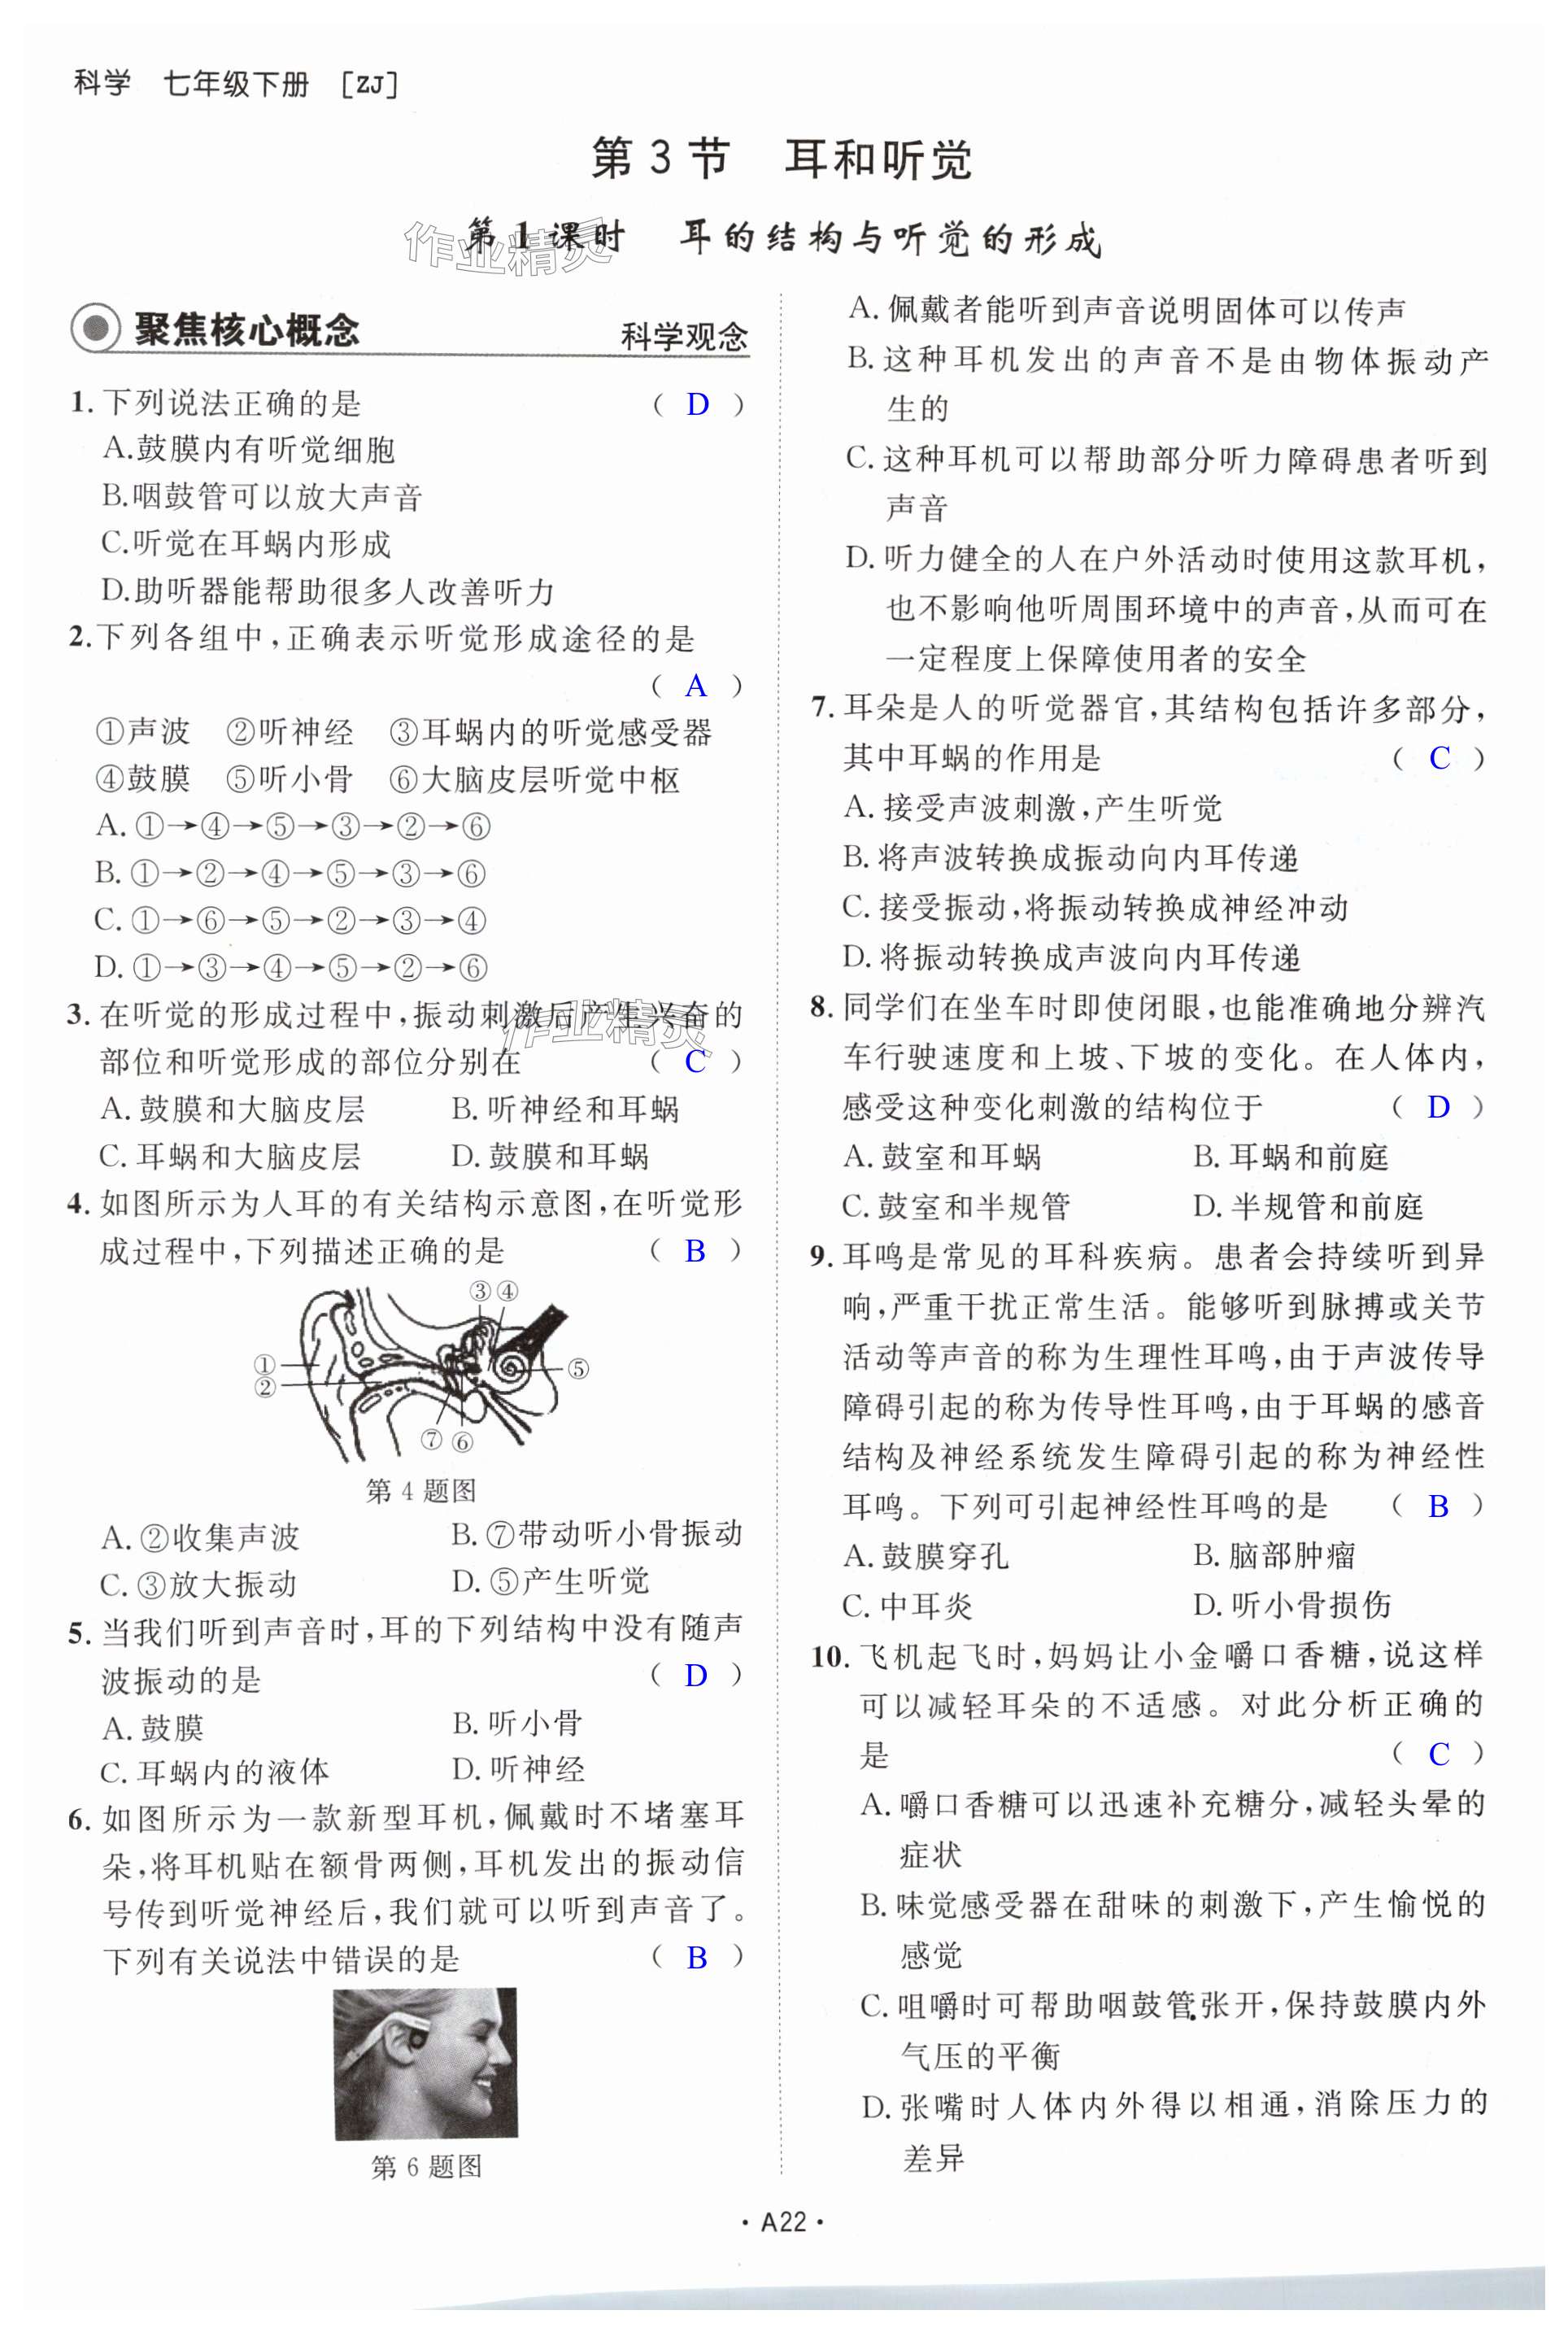 科学 七年级下册 [ZJ]
第3节 耳和听觉
第1课时 耳的结构与听觉的形成
作业精灵
聚焦核心概念 科学观念
1. 下列说法正确的是 ( D )
A.鼓膜内有听觉细胞
B.咽鼓管可以放大声音
C.听觉在耳蜗内形成
D.助听器能帮助很多人改善听力
2.下列各组中,正确表示听觉形成途径的是
( A )
①声波 ②听神经 ③耳蜗内的听觉感受器
④鼓膜 ⑤听小骨 ⑥大脑皮层听觉中枢
A. ①→④→⑤→③→②→⑥
B. ①→②→④→⑤→③→⑥
C. ①→⑥→⑤→②→③→④
D. ①→③→④→⑤→②→⑥
3. 在听觉的形成过程中,振动刺激后产生兴奋的
作业精灵
部位和听觉形成的部位分别在 ( C )
A. 鼓膜和大脑皮层 B. 听神经和耳蜗
C. 耳蜗和大脑皮层 D. 鼓膜和耳蜗
4. 如图所示为人耳的有关结构示意图,在听觉形
成过程中,下列描述正确的是 ( B )
③ ④
①
②
⑤
⑦ ⑥
第 4 题图
A. ②收集声波 B. ⑦带动听小骨振动
C. ③放大振动 D. ⑤产生听觉
5. 当我们听到声音时,耳的下列结构中没有随声
波振动的是 ( D )
A. 鼓膜 B. 听小骨
C. 耳蜗内的液体 D. 听神经
6. 如图所示为一款新型耳机,佩戴时不堵塞耳
朵,将耳机贴在额骨两侧,耳机发出的振动信
号传到听觉神经后,我们就可以听到声音了。
下列有关说法中错误的是 ( B )
第 6 题图
A. 佩戴者能听到声音说明固体可以传声
B. 这种耳机发出的声音不是由物体振动产
生的
C. 这种耳机可以帮助部分听力障碍患者听到
声音
D. 听力健全的人在户外活动时使用这款耳机,
也不影响他听周围环境中的声音,从而可在
一定程度上保障使用者的安全
7. 耳朵是人的听觉器官,其结构包括许多部分,
其中耳蜗的作用是 ( C )
A. 接受声波刺激,产生听觉
B. 将声波转换成振动向内耳传递
C. 接受振动,将振动转换成神经冲动
D. 将振动转换成声波向内耳传递
8. 同学们在坐车时即使闭眼,也能准确地分辨汽
车行驶速度和上坡、下坡的变化。在人体内,
感受这种变化刺激的结构位于 ( D )
A. 鼓室和耳蜗 B. 耳蜗和前庭
C. 鼓室和半规管 D. 半规管和前庭
9. 耳鸣是常见的耳科疾病。患者会持续听到异
响,严重干扰正常生活。能够听到脉搏或关节
活动等声音的称为生理性耳鸣,由于声波传导
障碍引起的称为传导性耳鸣,由于耳蜗的感音
结构及神经系统发生障碍引起的称为神经性
耳鸣。下列可引起神经性耳鸣的是 ( B )
A. 鼓膜穿孔 B. 脑部肿瘤
C. 中耳炎 D. 听小骨损伤
10. 飞机起飞时,妈妈让小金嚼口香糖,说这样
可以减轻耳朵的不适感。对此分析正确的
是 ( C )
A. 嚼口香糖可以迅速补充糖分,减轻头晕的
症状
B. 味觉感受器在甜味的刺激下,产生愉悦的
感觉
C. 咀嚼时可帮助咽鼓管张开,保持鼓膜内外
气压的平衡
D. 张嘴时人体内外得以相通,消除压力的
差异
· A22 ·